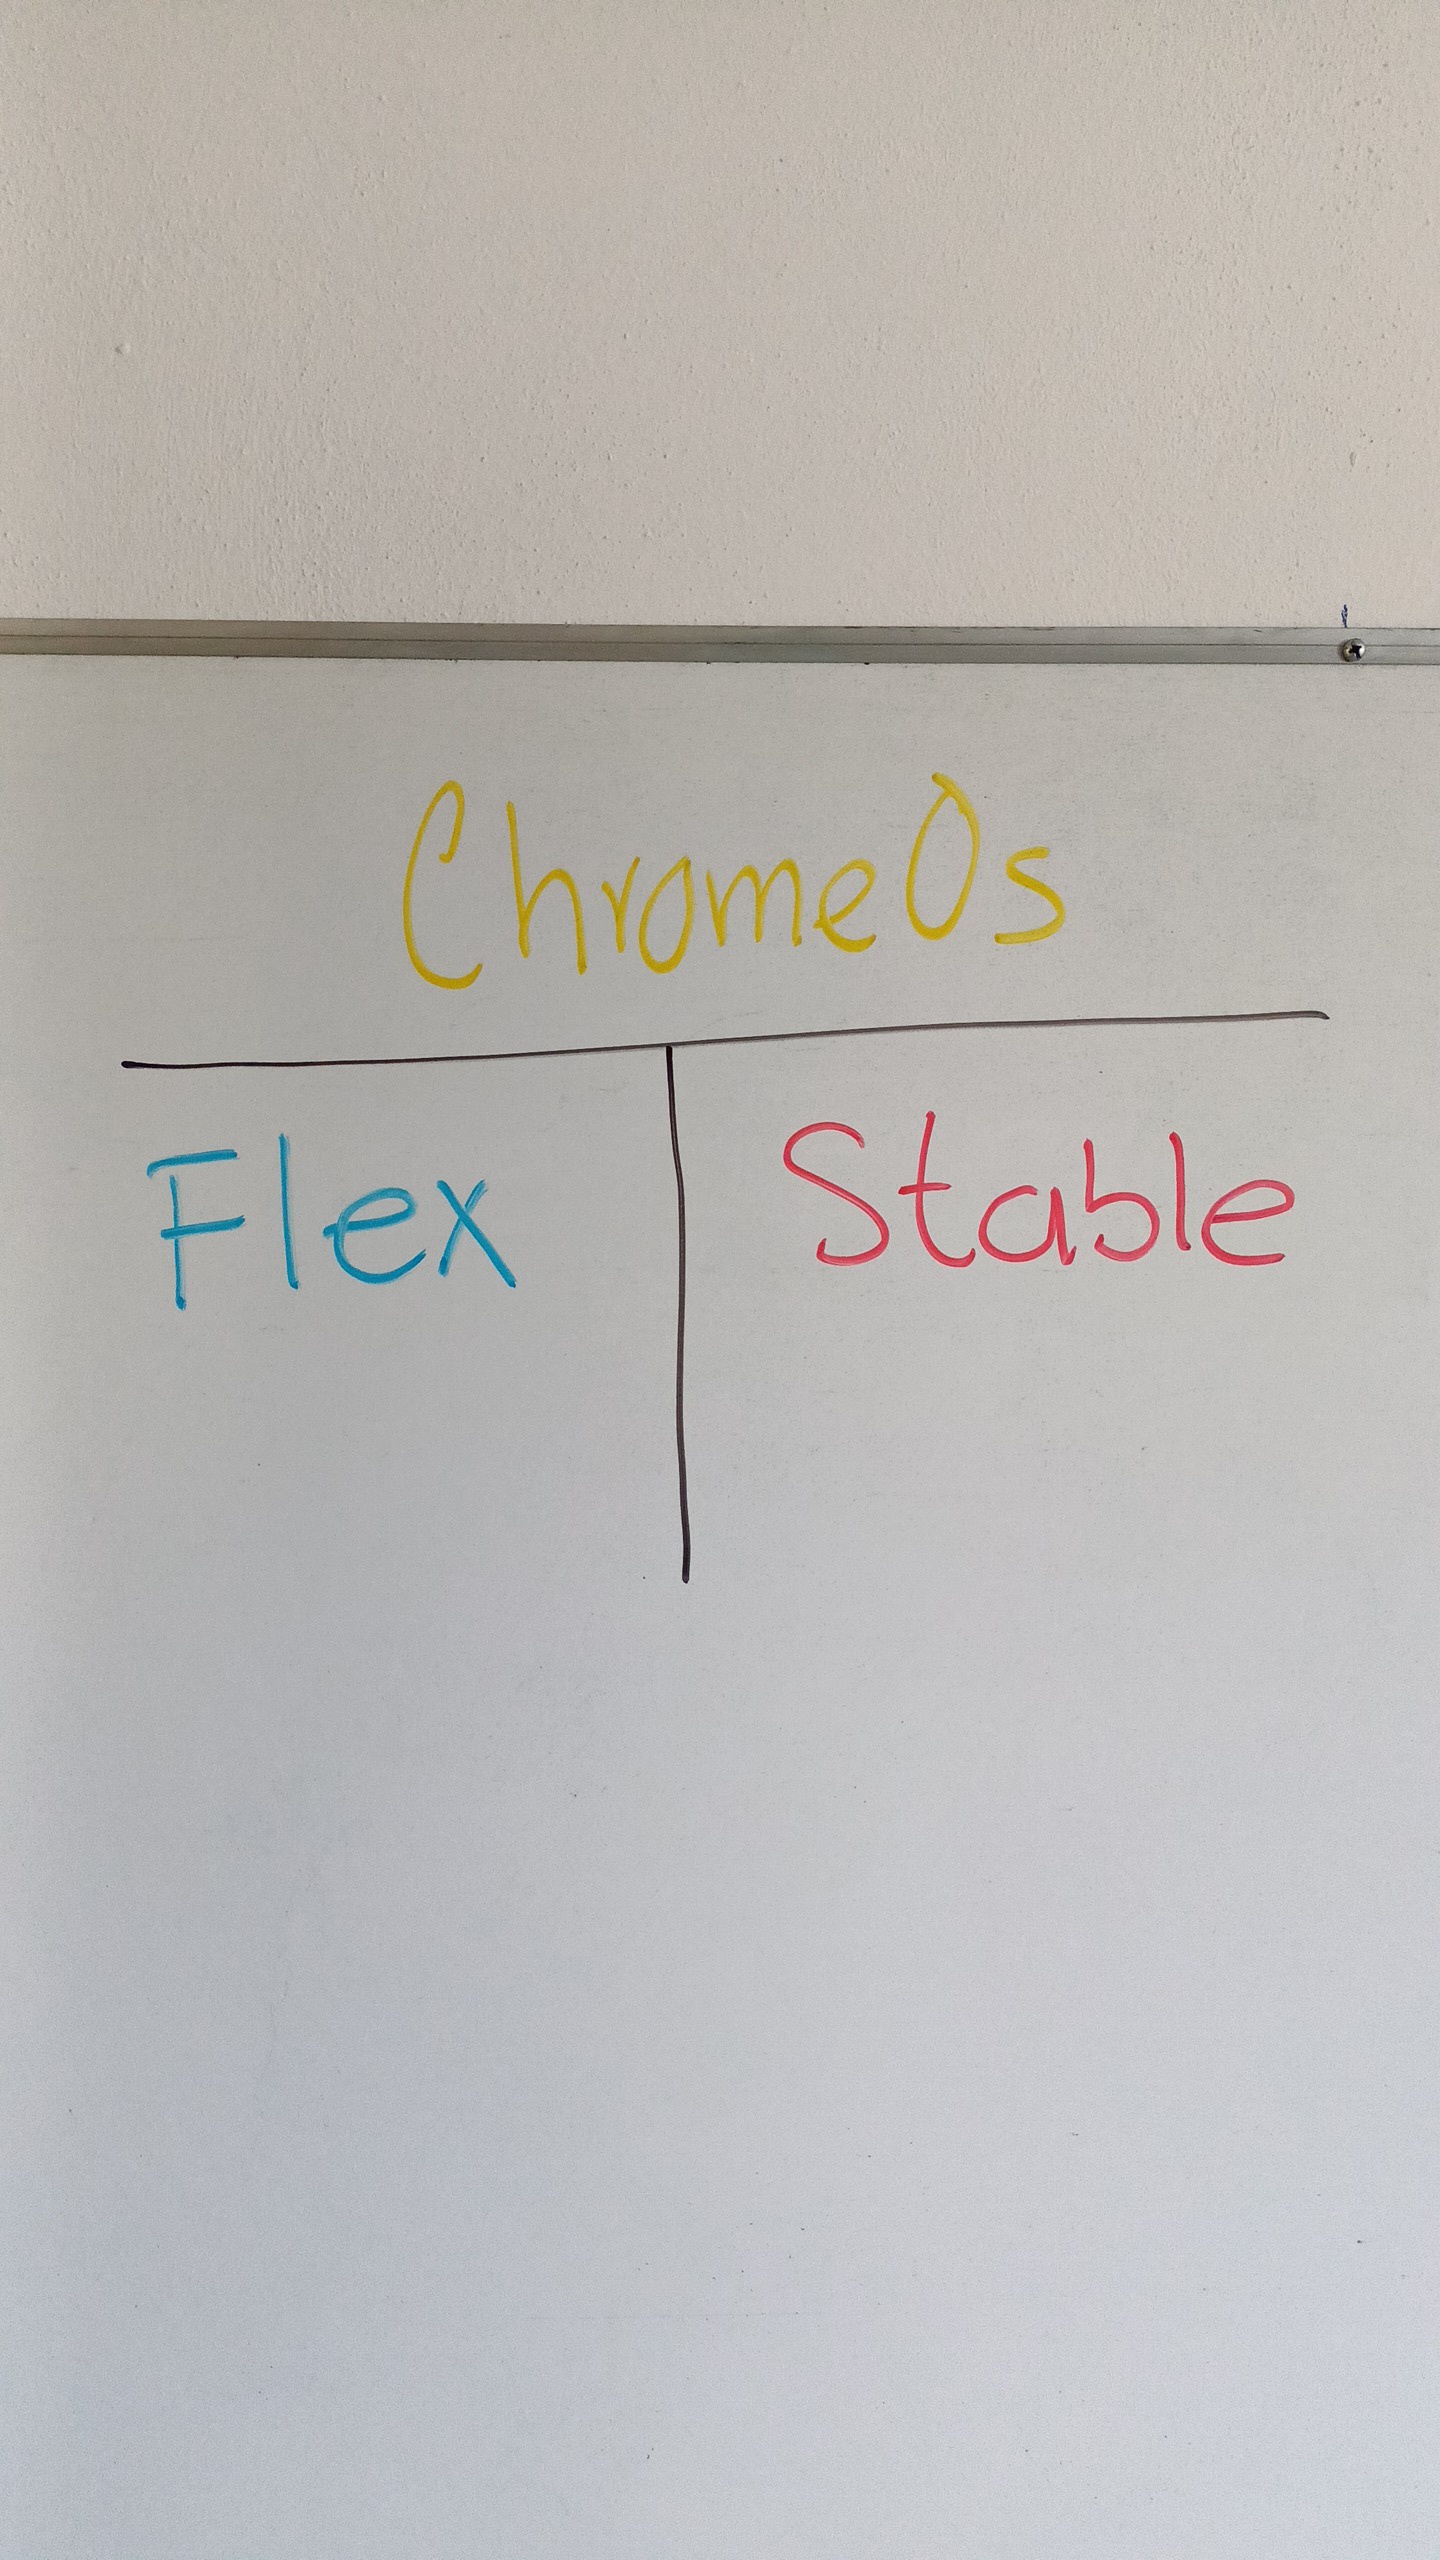 ChromeOs
Flex Stable